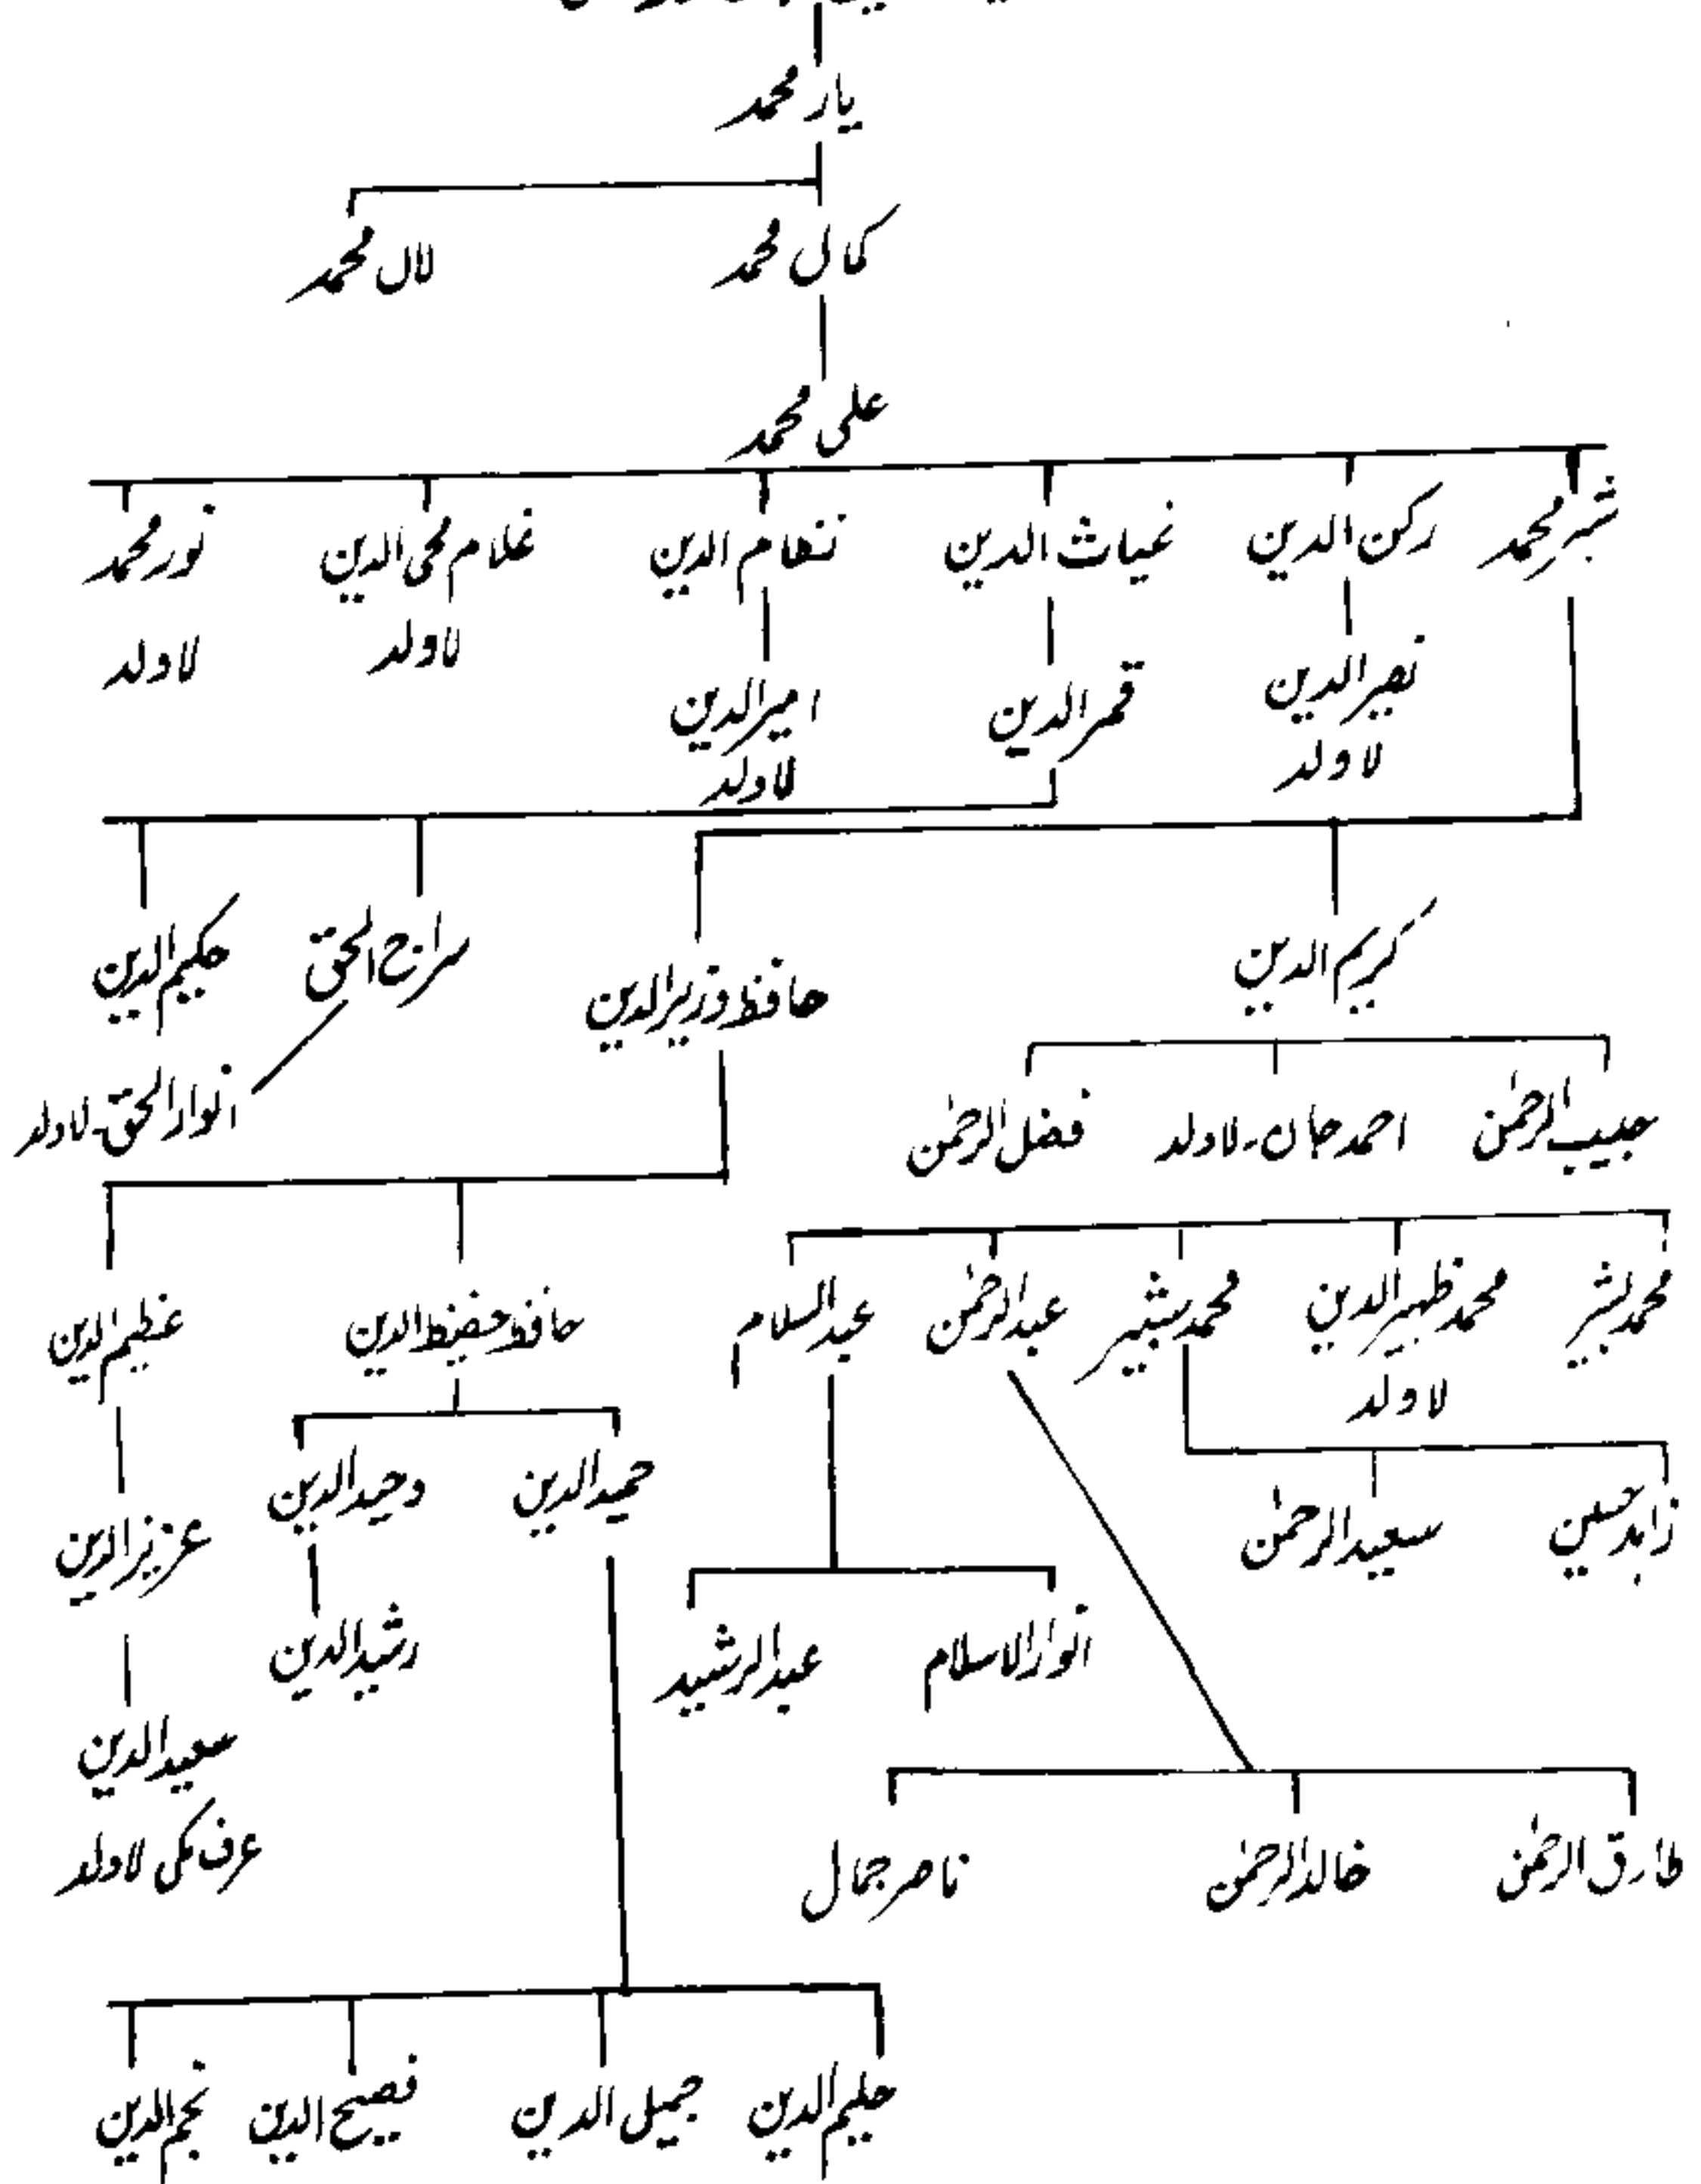 یار محمد
کمال محمد
لال محمد
علی محمد
شیر محمد
رکن الدین
غیاث الدین
نظام الدین
غلام محی الدین
نور محمد
نصیر الدین
لاولد
قمر الدین
امیر الدین
لاولد
لاولد
لاولد
کریم الدین
حافظ وزیر الدین
سراج الحق
حکیم الدین
حبیب الرحمٰن
احمد جان۔ لاولد
فضل الرحمٰن
انوار الحق۔ لاولد
محمد بشر
محمد ظہیر الدین
لاولد
محمد بشیر
عبدالرحمٰن
عبدالسلام
حافظ حفیظ الدین
عظیم الدین
زاہد حسین
سعید الرحمٰن
حمید الدین
وحید الدین
عزیز الدین
انوار الاسلام
عبدالرشید
رشید الدین
سعید الدین
عرف مکی لاولد
طارق الرحمٰن
خالد الرحمٰن
ناصر جمال
حلیم الدین
جمیل الدین
فصیح الدین
نجم الدین